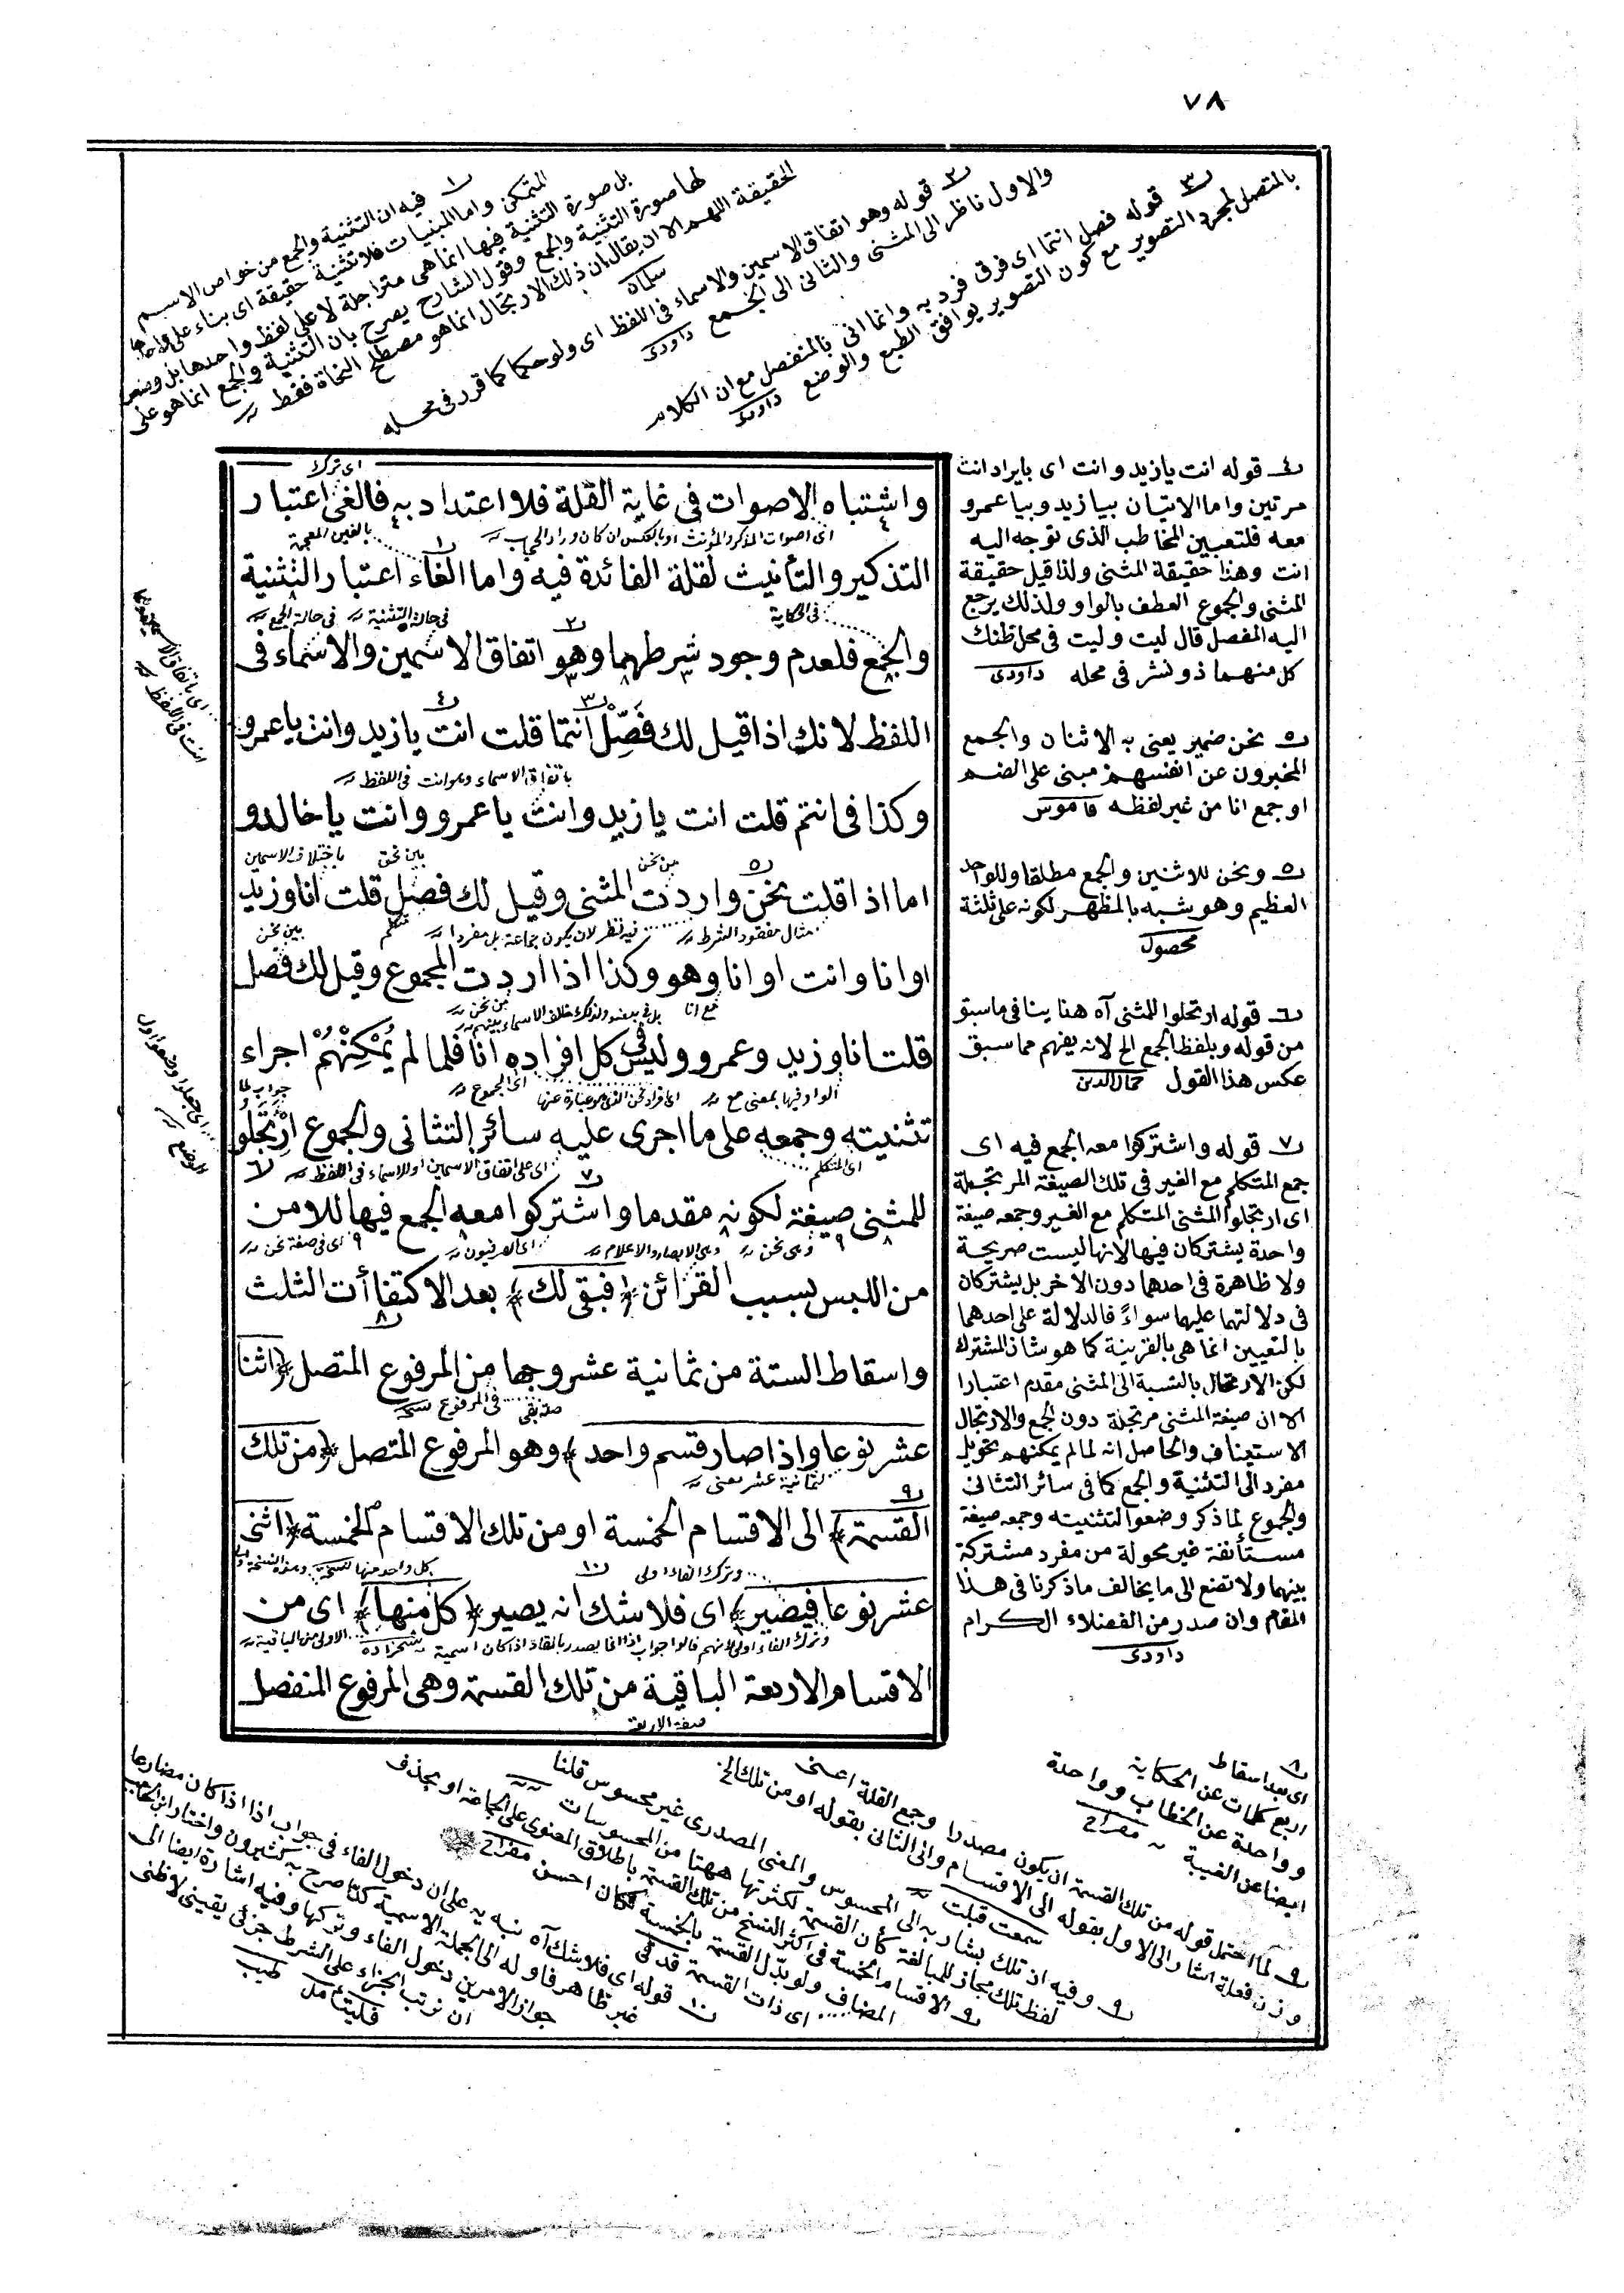 ٧٨
١ فيه ان التثنية والجمع من خواص الاسم
المتمكن واما المبنيات فلا تثنية حقيقة اى بناء على واحدها
بل صورة التثنية فيها انما هى متراجلة لا على لفظ واحدها بل وضع
لها صورة التثنية والجمع وقول الشارح يصرح بان التثنية والجمع انما هو على
الحقيقة اللهم الا ان يقال ان ذلك الارتجال انما هو مصطلح النحاة فقط
٢ قوله وهو اتفاق الاسمين والاسماء فى اللفظ اى ولو حكما كما قرر فى محله
والاول ناظر الى المثنى والثانى الى الجمع داودى
٣ قوله فصل انتما اى فرق فرد به وانما اتى بالمنفصل مع ان الكلام
بالمتصل لمجرد التصوير مع كون التصوير يوافق الطبع والوضع داودى
اى ترك
واشتباه الاصوات فى غاية القلة فلا اعتداد به فالغى اعتبار
اى اصوات المذكر والمؤنث او بالعكس ان كان وراء الحجاب
بالغين المعجمة
التذكير والتأنيث لقلة الفائدة فيه واما الغاء اعتبار التثنية
فى الحكاية
فى حالة التثنية
فى حالة الجمع
والجمع فلعدم وجود شرطهما وهو اتفاق الاسمين والاسماء فى
اللفظ لانك اذا قيل لك فَصِّلْ انتما قلت انت يا زيد وانت يا عمرو
باتفاق الاسماء وهو انت فى اللفظ
وكذا فى انتم قلت انت يا زيد وانت يا عمرو وانت يا خالد و
من نحن
بين نحن
باختلاف الاسمين
اما اذا قلت نحن واردت المثنى وقيل لك فصل قلت انا وزيد
مثال مفقود الشرط
فيه نظر لان يكون جماعة بل مفردا
متكلم
بين نحن
او انا وانت او انا وهو وكذا اذا اردت المجموع وقيل لك فصل
مع انا
من نحن
قلت انا وزيد وعمرو وليس فى كل افراده انا فلما لم يُمْكِنْهُمْ اجراء
الواو فيها بمعنى مع
اى افراد نحن الذى هو عبارة عنها
اى المجموع
جواب لما
تثنيته وجمعه على ما اجرى عليه سائر التثانى والجموع ارْتَجَلُو
اى المتكلم
اى على اتفاق الاسمين او الاسماء فى اللفظ
للمثنى صيغة لكونه مقدما واشتركوا معه الجمع فيها للامن
وهى نحن
وهى الابصار والاعلام
اى الصرفيون
اى فى صفة نحن
من اللبس بسبب القرائن ﴿فبقى لك﴾ بعد الاكتفاأت الثلث
واسقاط الستة من ثمانية عشر وجها من المرفوع المتصل ﴿اثنا
صفة بقى
فى المرفوع
عشر نوعا واذا صار قسم واحد﴾ وهو المرفوع المتصل ﴿من تلك
ثمانية عشر معنى
القسمة﴾ الى الاقسام الخمسة او من تلك الاقسام الخمسة ﴿اثنى
وترك الفاء اولى
كل واحد منها
عشر نوعا فيصير﴾ اى فلا شك انه يصير ﴿كل منها﴾ اى من
الاولى من الباقية
الاقسام الاربعة الباقية من تلك القسمة وهى المرفوع المنفصل
صفة الاربعة
٤ قوله انت يا زيد وانت اى بايراد انت
مرتين واما الاتيان بيا زيد وبيا عمرو
معه فلتعيين المخاطب الذى توجه اليه
انت وهذا حقيقة المثنى ولذا قيل حقيقة
المثنى والجموع العطف بالواو ولذلك يرجع
اليه المفصل قال ليت وليت فى محل ظنك
كل منهما ذو نشر فى محله داودى
٥ نحن ضمير يعنى به الاثنان والجمع
المخبرون عن انفسهم مبنى على الضم
او جمع انا من غير لفظه قاموس
٥ ونحن للاثنين والجمع مطلقا وللواحد
العظيم وهو شبه بالمظهر لكونه على ثلثة
محصول
٦ قوله ارتجلوا للمثنى آه هنا ينافى ما سبق
من قوله وبلفظ الجمع الخ لانه يفهم مما سبق
عكس هذا القول جمال الدين
٧ قوله واشتركوا معه الجمع فيه اى
جمع المتكلم مع الغير فى تلك الصيغة المرتجلة
اى ارتجلوا المثنى المتكلم مع الغير وجمعه صيغة
واحدة يشتركان فيها لانها ليست صريحة
ولا ظاهرة فى احدهما دون الاخر بل يشتركان
فى دلالتها عليهما سواءً فالدلالة على احدهما
بالتعيين انما هى بالقرينة كما هو شان المشترك
لكن الارتجال بالنسبة الى المثنى مقدم اعتبارا
الا ان صيغة المثنى مرتجلة دون الجمع والارتجال
الاستيناف والحاصل انه لما لم يمكنهم تحويل
مفرد الى التثنية والجمع كما فى سائر التثانى
والجموع لما ذكر وضعوا لتثنيته وجمعه صيغة
مستأنفة غير محولة من مفرد مشتركة
بينهما ولا تصغ الى ما يخالف ما ذكرنا فى هذا
المقام وان صدر من الفضلاء الكرام
داودى
٨ اى بعد اسقاط
اربع كلمات عن الحكاية
وواحدة عن الخطاب وواحدة
ايضا عن الغيبة
٩ لما احتمل قوله من تلك القسمة ان يكون مصدرا وجمع القلة اعنى
وزن فعلة اشار الى الاول بقوله الى الاقسام والى الثانى بقوله او من تلك الخ
٩ وفيه ان تلك يشار به الى المحسوس والمعنى المصدرى غير محسوس قلنا
لفظ تلك مجاز للمبالغة كأن القسمة لكثرتها ههنا من المحسوسات
٩ الاقسام الخمسة فى اكثر النسخ من تلك القسمة باطلاق المعنوى على الجماعة او بحذف
المضاف ولو بدّل القسمة بالخمسة لكان احسن
اى ذات القسمة
١٠ قوله اى فلا شك آه نبه به على ان دخول الفاء فى جواب اذا اذا كان مضارعا
غير ظاهر فاوله الى الجملة الاسمية كما صرح به كثيرون واختار ابن الحاجب
جواز الامرين دخول الفاء وتركها وفيه اشارة ايضا الى
ان ترتب الجزاء على الشرط جزئى يقينى لا ظنى
فليتأمل طيب